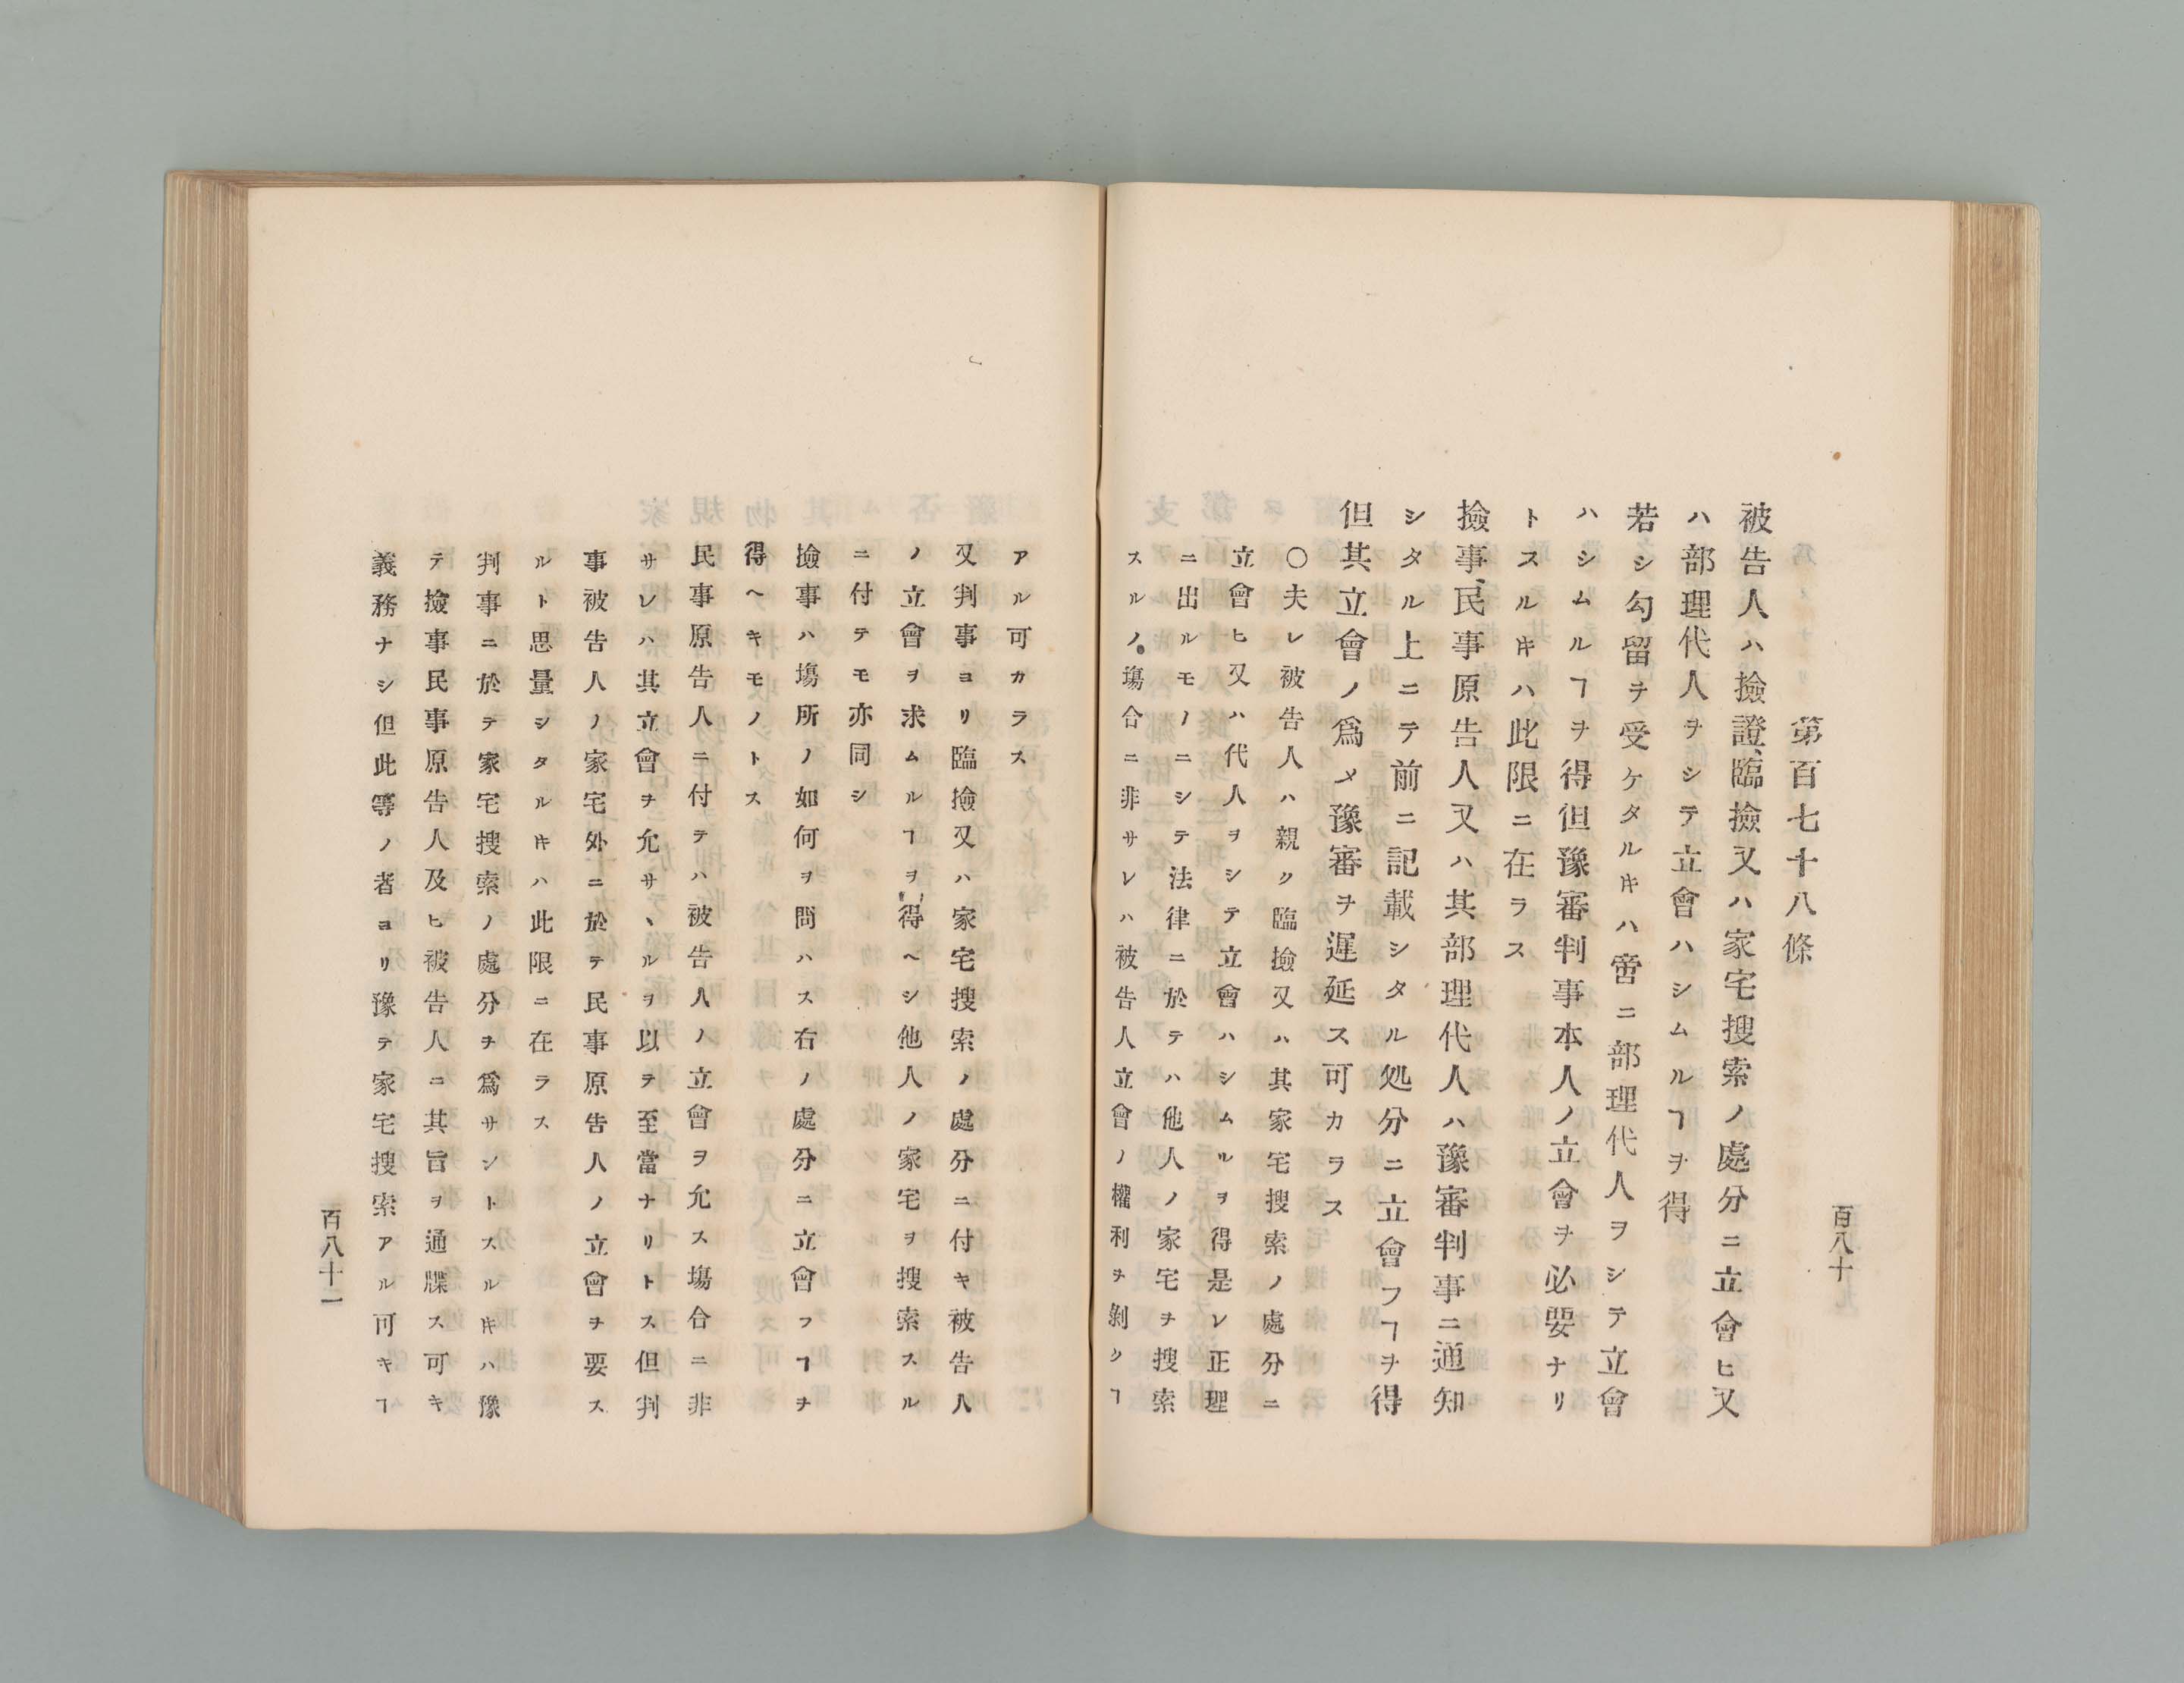 百八十
第百七十八條
被告人ハ撿證、臨撿又ハ家宅搜索ノ處分ニ立會ヒ又
ハ部理代人ヲシテ立會ハシムルヿヲ得
若シ勾留ヲ受ケタルキハ啻ニ部理代人ヲシテ立會
ハシムルヿヲ得但豫審判事本人ノ立會ヲ必要ナリ
トスルキハ此限ニ在ラス
撿事、民事原告人又ハ其部理代人ハ豫審判事ニ通知
シタル上ニテ前ニ記載シタル処分ニ立會フヿヲ得
但其立會ノ爲メ豫審ヲ遲延ス可カラス
〇夫レ被告人ハ親ク臨撿又ハ其家宅搜索ノ處分ニ
立會ヒ又ハ代人ヲシテ立會ハシムルヲ得是レ正理
ニ出ルモノニシテ法律ニ於テハ他人ノ家宅ヲ搜索
スルノ塲合ニ非サレハ被告人立會ノ權利ヲ剝クヿ
アル可カラス
又判事ヨリ臨撿又ハ家宅搜索ノ處分ニ付キ被告人
ノ立會ヲ求ムルヿヲ得ヘシ他人ノ家宅ヲ搜索スル
ニ付テモ亦同シ
撿事ハ塲所ノ如何ヲ問ハス右ノ處分ニ立會フヿヲ
得ヘキモノトス
民事原告人ニ付テハ被告人ノ立會ヲ允ス塲合ニ非
サレハ其立會ヲ允サヽルヲ以テ至當ナリトス但判
事被告人ノ家宅外ニ於テ民事原告人ノ立會ヲ要ス
ルト思量シタルキハ此限ニ在ラス
判事ニ於テ家宅搜索ノ處分ヲ爲サントスルキハ豫
テ撿事民事原告人及ヒ被告人ニ其旨ヲ通牒ス可キ
義務ナシ但此等ノ者ヨリ豫テ家宅搜索アル可キヿ
百八十一